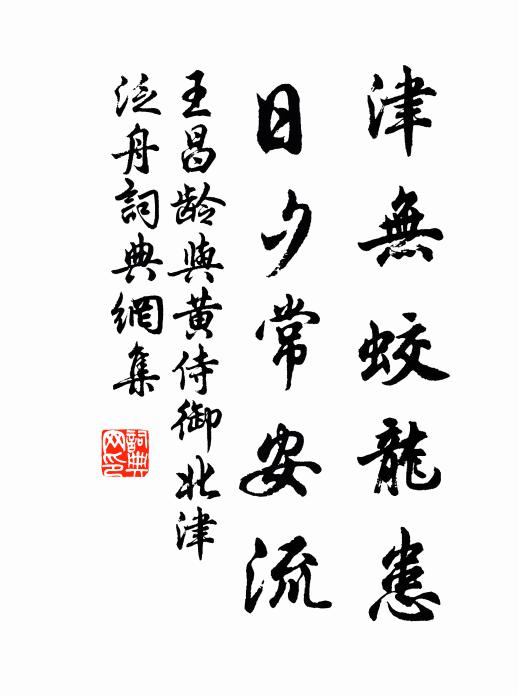 津無蛟龍患
日夕常安流
王昌龄與黄侍御北津
泛舟詞典網集
詞典
网印